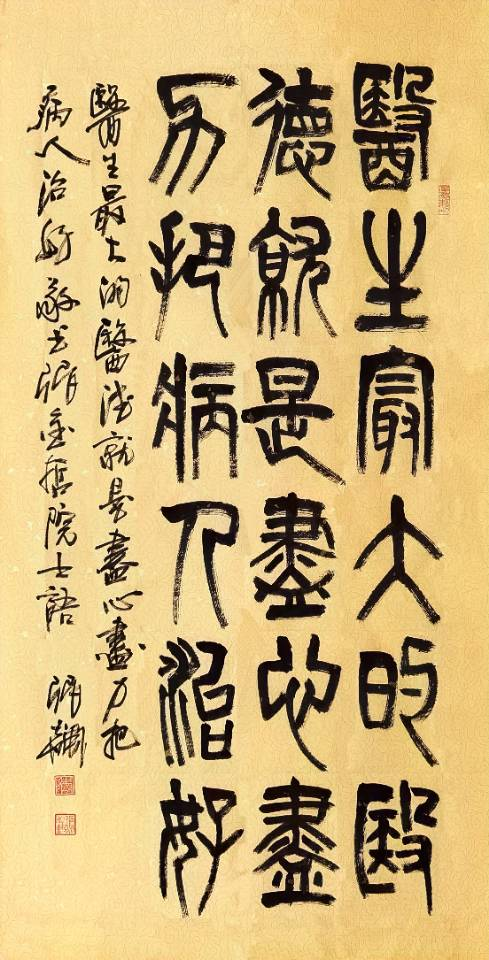 醫生最大的醫
德就是盡心盡
力把病人治好
醫生最大的醫德就是盡心盡力把
病人治好敬書張金哲院士語